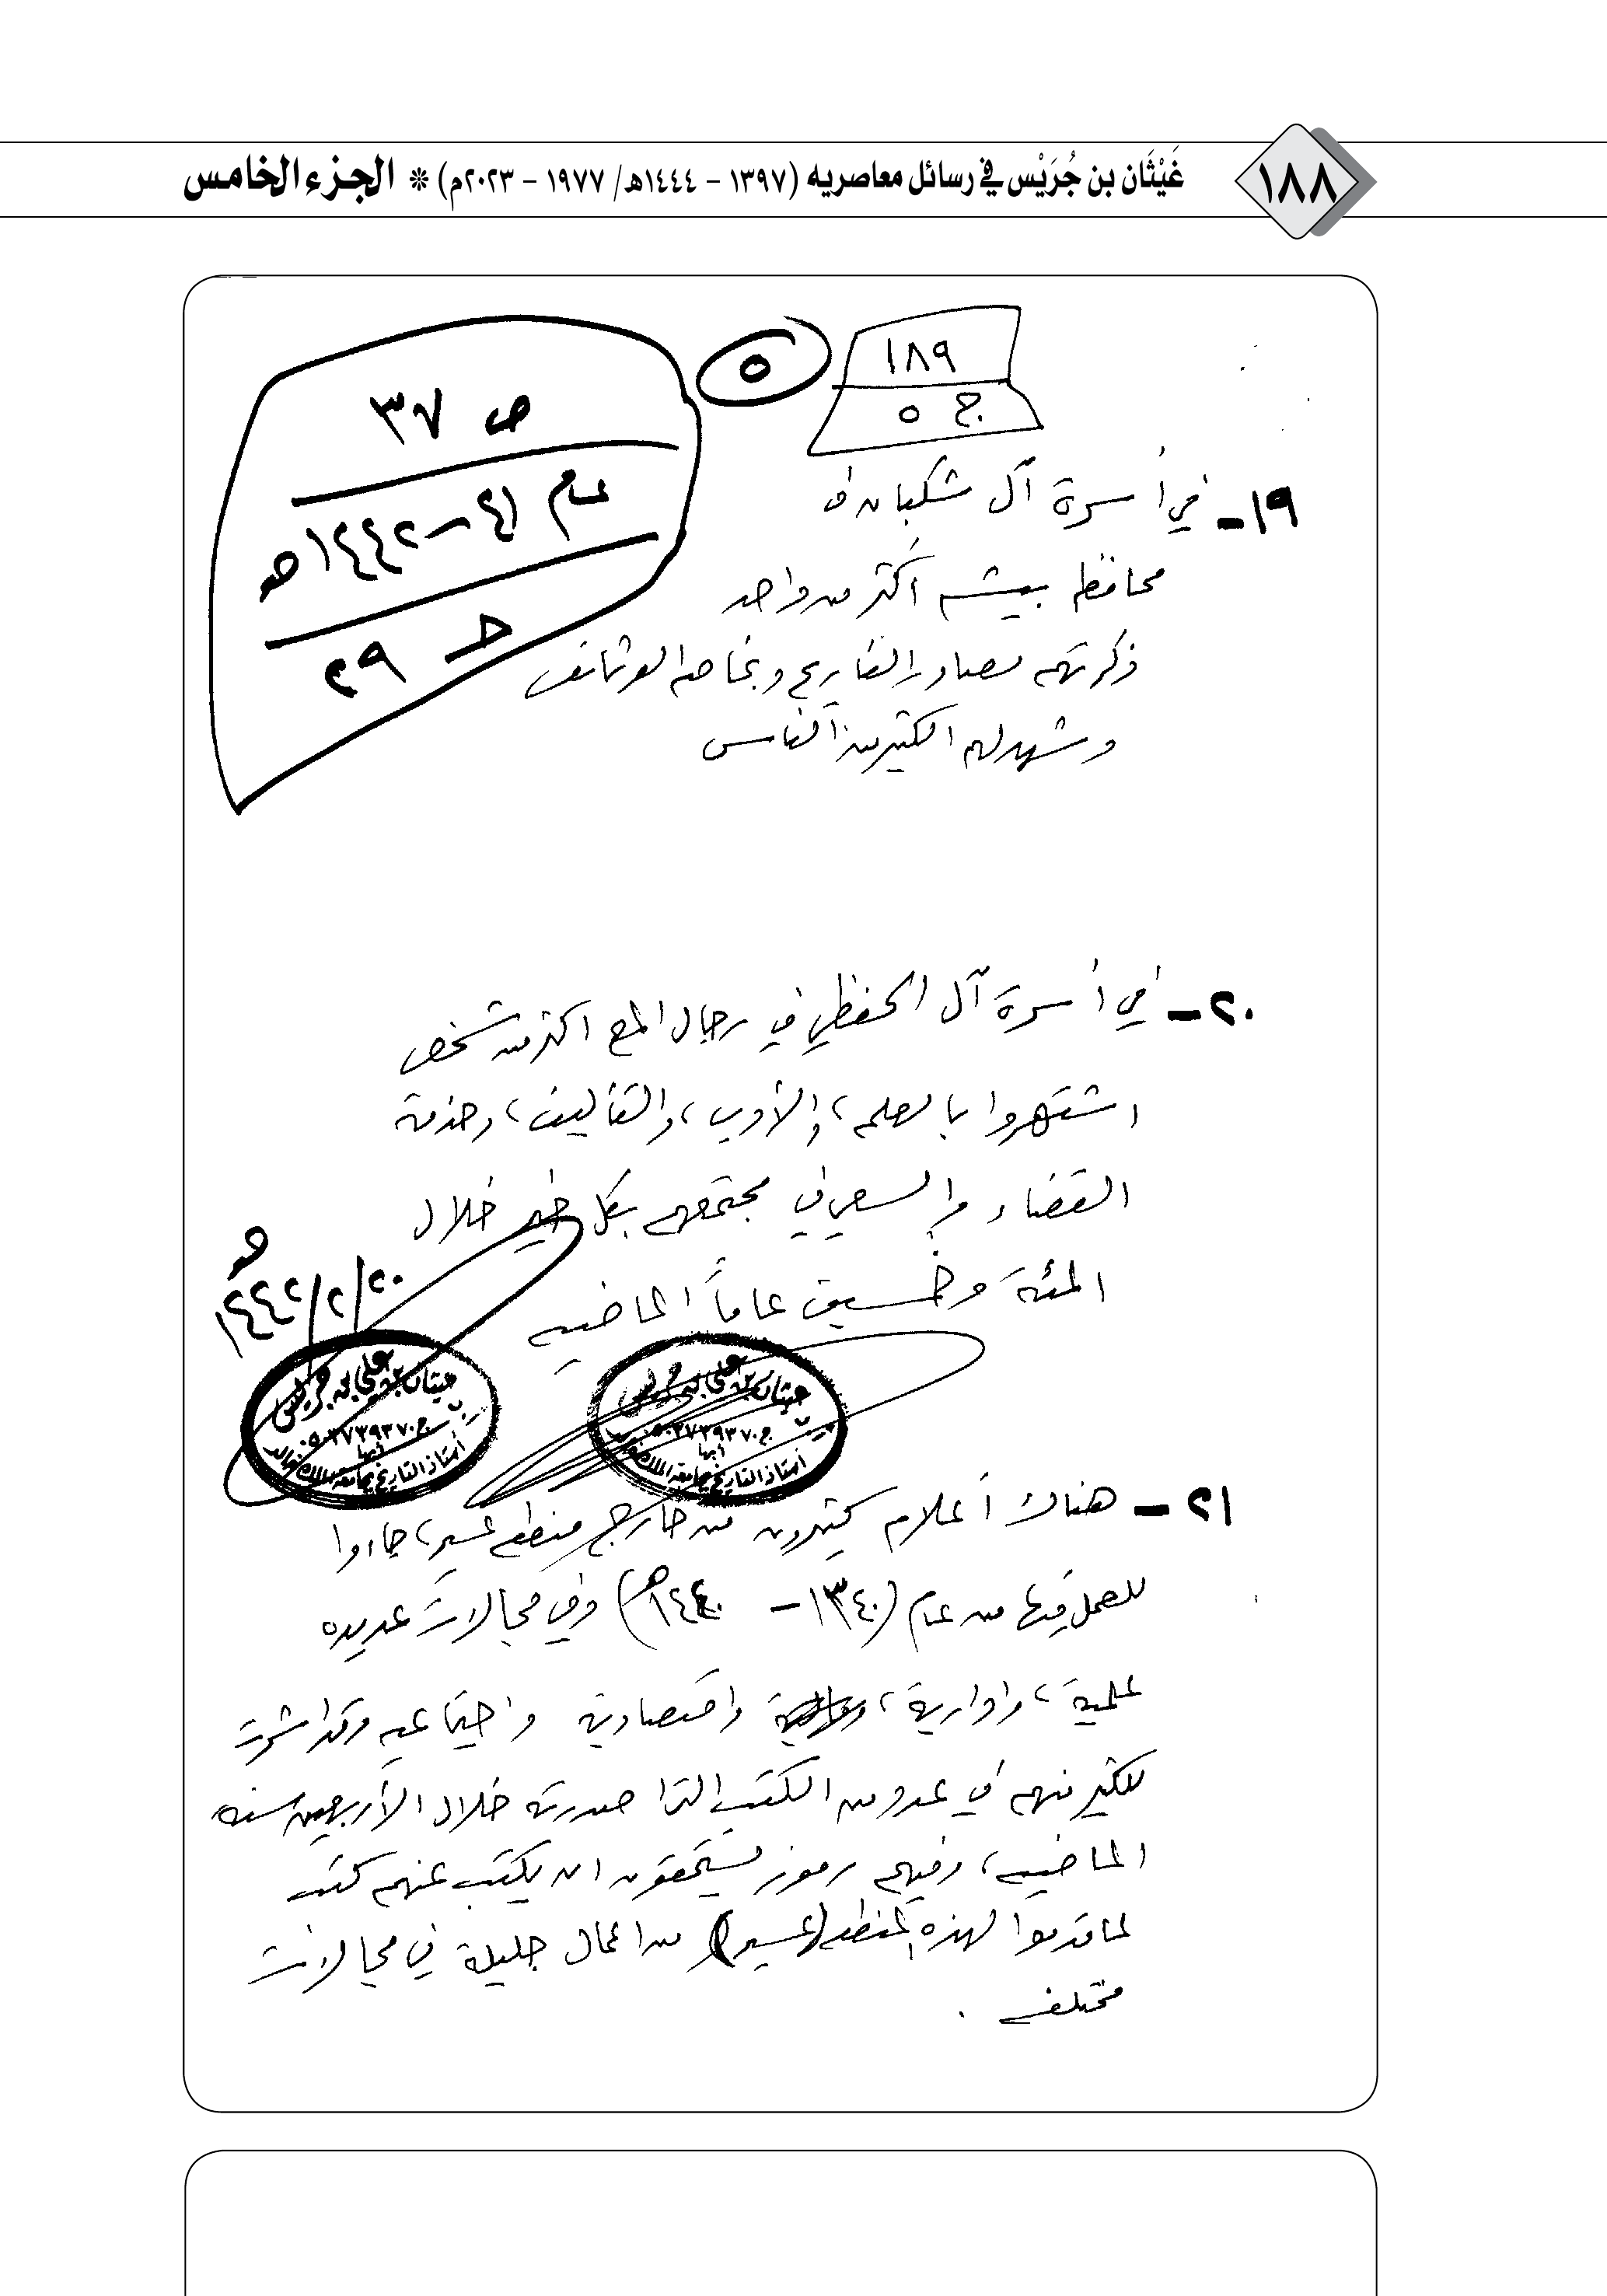 ١٨٨
غَيْثَان بن جُرَيْس في رسائل معاصريه (١٣٩٧ - ١٤٤٤هـ / ١٩٧٧ - ٢٠٢٣م) * الجزء الخامس
١٨٩
ج ٥
٥
ص ٣٧
عام ٤١-١٤٤٢هـ
حـ ٢٩
١٩- في أسرة آل شكبان في
محافظة بيشة أكثر من واحد
ذكرتهم مصادر التاريخ وبخاصة الوثائق
وشهد لهم الكثير من الناس
٢٠- في أسرة آل الحفظي في رجال المع اكثر من شخص
اشتهروا بالعلم، والأدب، والتأليف، وخدمة
القضاء والسعي في مجتمعهم بكل خير خلال
المئة وخمسين عاماً الماضية
٢٠/٢/١٤٤٢هـ
غيثان بن علي بن جريس
ج٠٥٠٣٧٣٩٣٧٠
أبها
أستاذ التاريخ بجامعة الملك خالد
غيثان بن علي بن جريس
ج٠٥٠٣٧٣٩٣٧٠
أبها
أستاذ التاريخ بجامعة الملك خالد
٢١- هناك أعلام كثيرون من خارج منطقة عسير، جاءوا
للعمل فيها من عام (١٣٤٠- ١٤٤٠هـ) وفي مجالات عديدة
علمية، وادارية، واقتصادية واجتماعية وقد اشرت
للكثير منهم في عدد من الكتب التي صدرت خلال الأربعين سنة
الماضية، وفيهم رموز يستحقون ان يكتب عنهم كتب
لما قدموا لهذه المنطقة (عسير) من اعمال جليلة في مجالات
مختلفة .